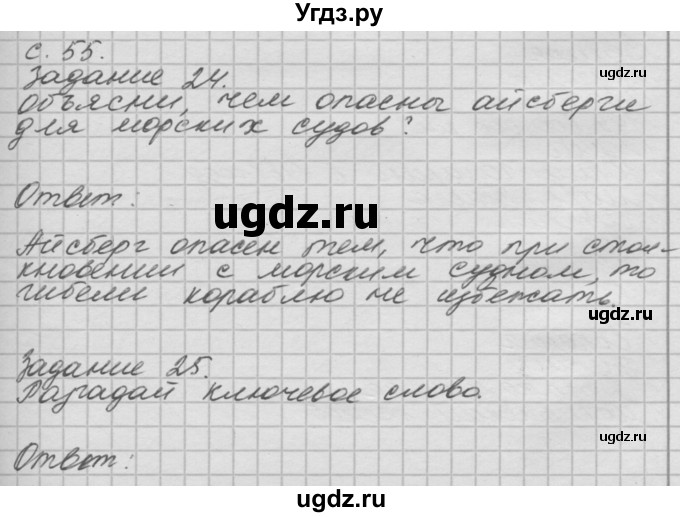 Угдз.ру
с. 55.
Задание 24.
Объясни, чем опасны айсберги
для морских судов?
Ответ:
Айсберг опасен тем, что при стол-
кновении с морским судном, то
гибели кораблю не избежать.
Задание 25.
Разгадай ключевое слово.
Ответ:
ugdz.ru
ugdz.ru
ugdz.ru
ugdz.ru
ugdz.ru